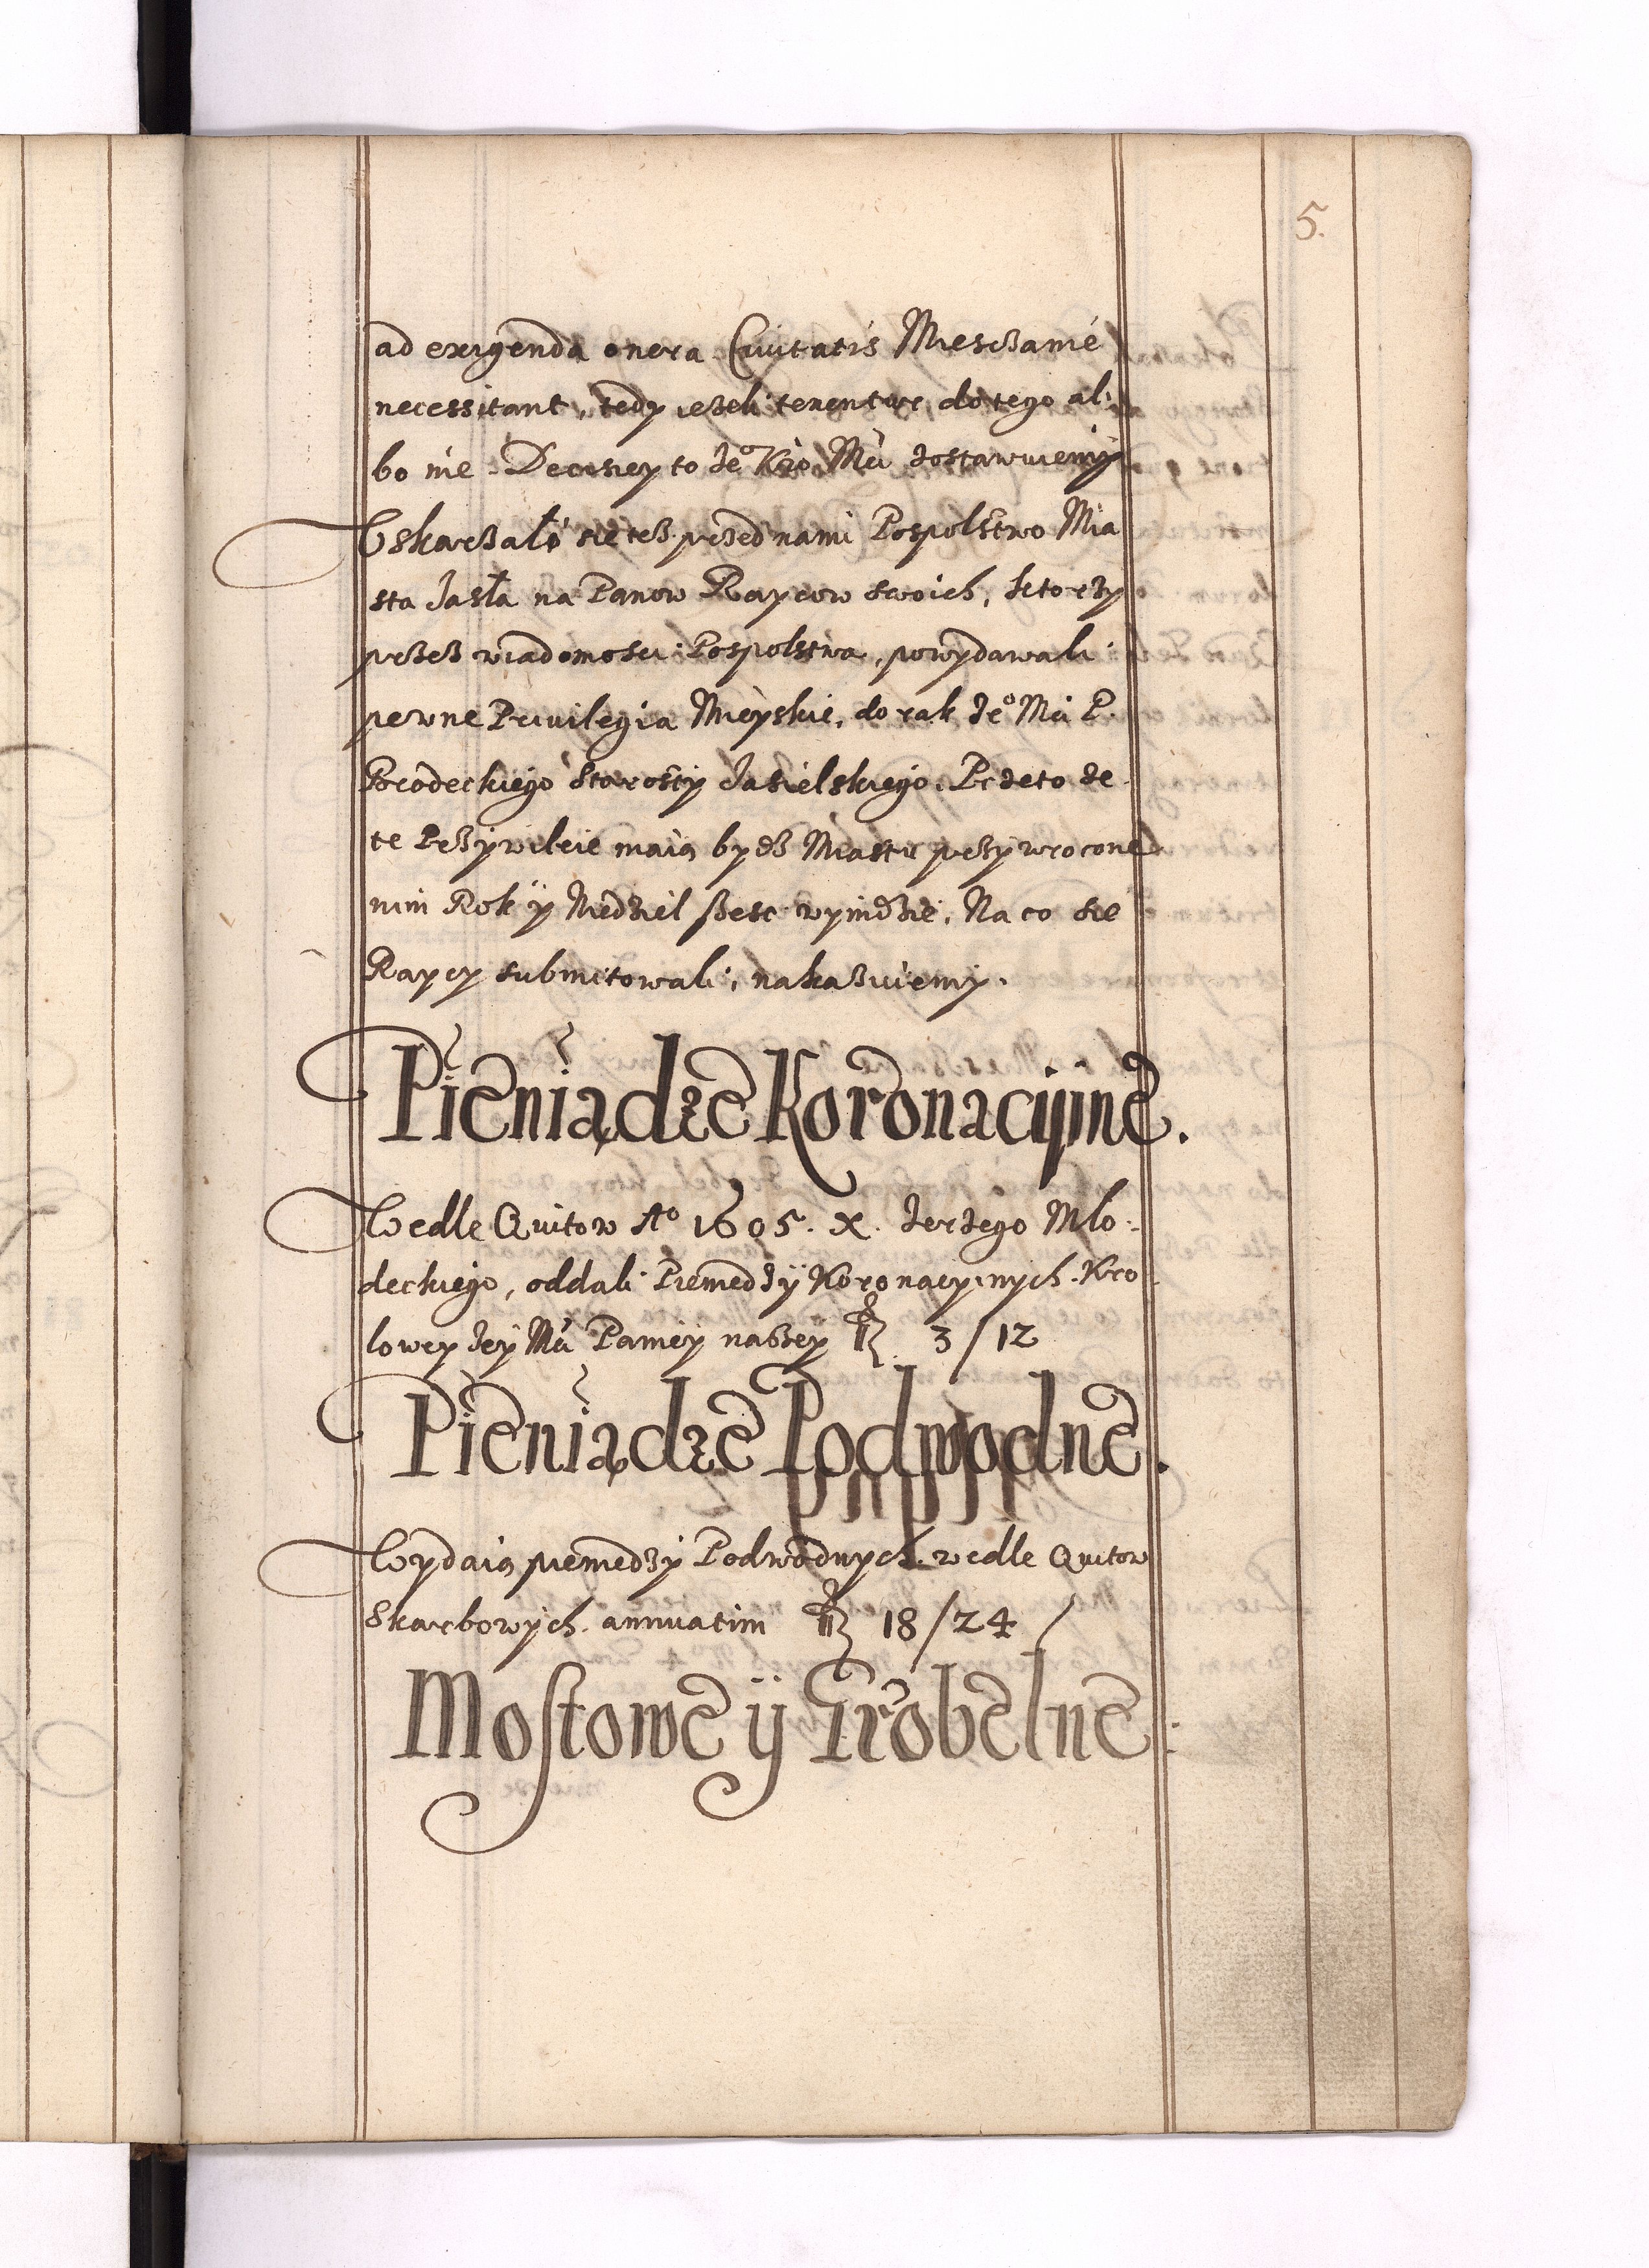 5.
ad exigenda onera Civitatis Miesczanie
necessitant, tedy ieżeli tenentur do tego al:
bo nie. Decisiey to Je° Kro Mći zostawuiemy
Uskarżało sie też przed nami Pospolstwo Mia
sta Jasła na Panow Raycow swoich, ktorzy
przez wiadomosci Pospolstwa, powydawali
pewne Privilegia Mieyskie, do rak Je° Mći P.
Brodeckiego Starosty Jasielskiego. Przeto ze
te Przywileie maią bydz Miastu przywrocone
nim Rok ÿ Niedziel szesc wynidzie, Na co sie
Raycy submitowali, nakazuiemy.
Pieniądze Koronacyine.
Wedle Quitow A° 1605. X. Jerzego Mlo:
deckiego, oddali Pieniedzÿ Koronacyinych Kro
lowey Jey Mći Paniey naszey 3/12
Pieniądze Podwodne.
Wydaią pieniedzy Podwodnych wedle Quitow
Skarbowych annuatim 18/24
Mostowe ÿ Grobelne: